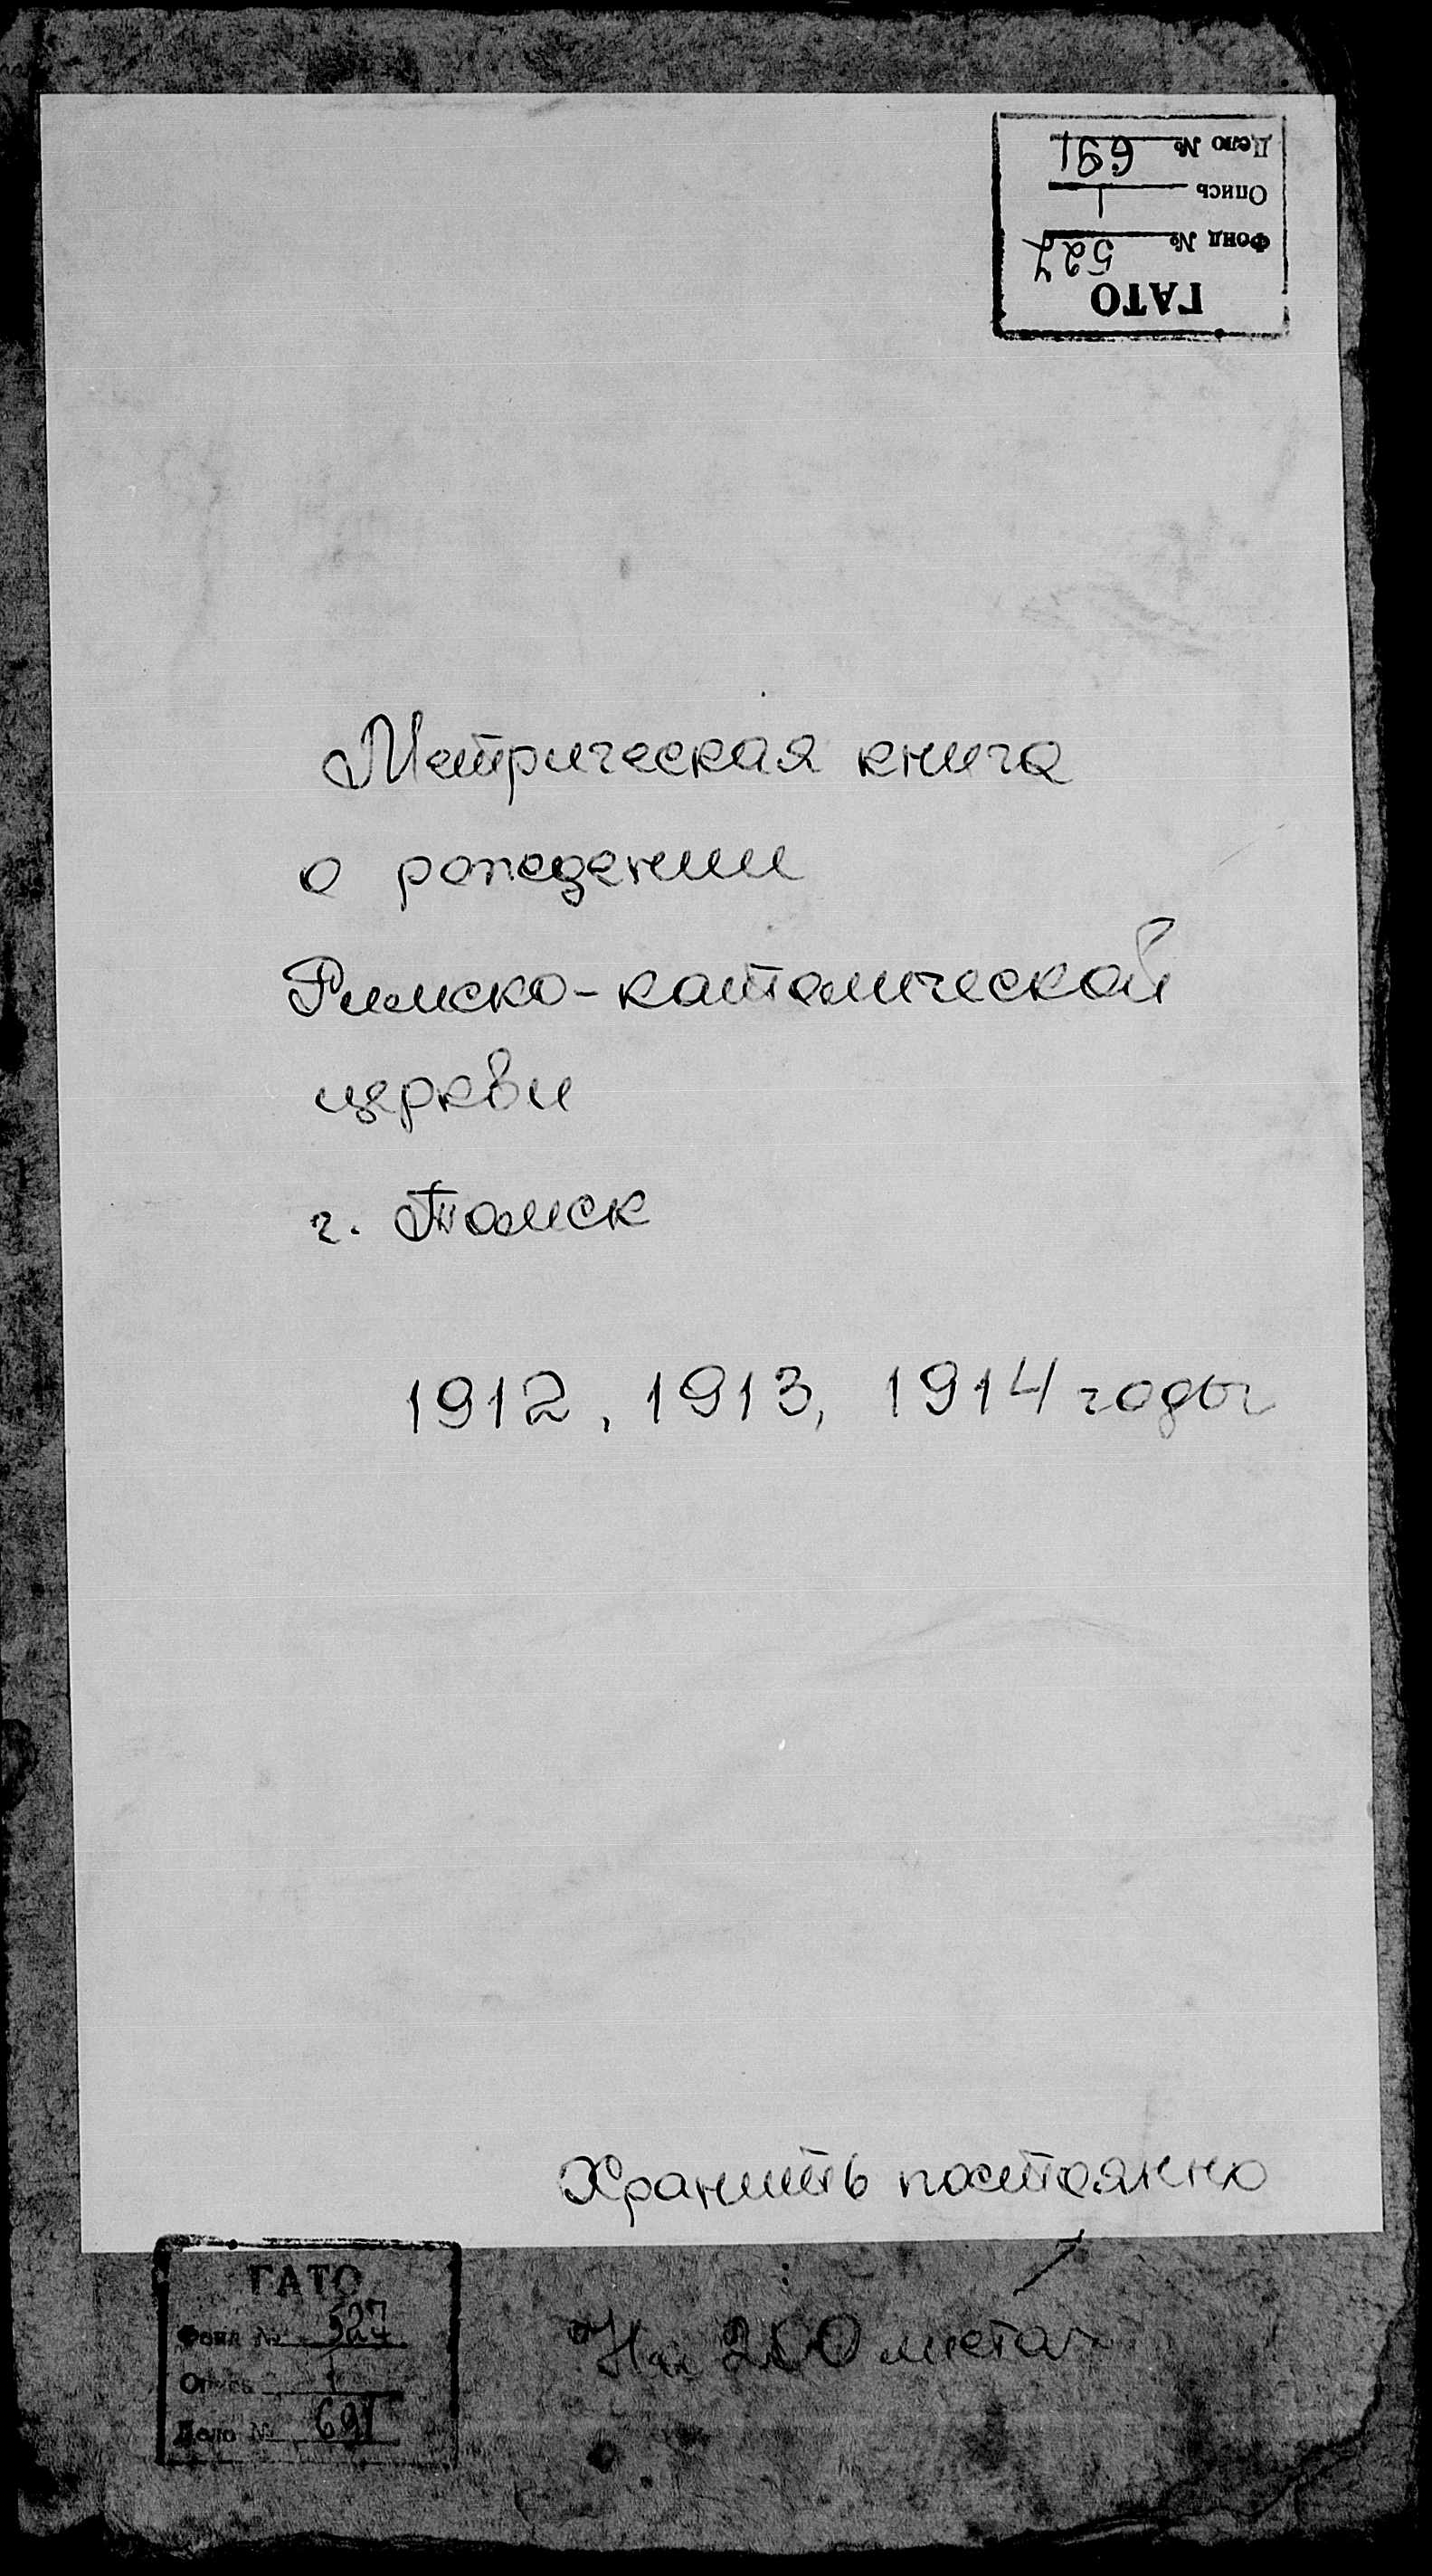 ГАТО
Фонд № 527
Опись 1
Дело № 691
Метрическая книга
о рождении
Римско-католической
церкви
г. Томск
1912, 1913, 1914 годы
Хранить постоянно
ГАТО
Фонд № 527
Опись 1
Дело № 691
На листах